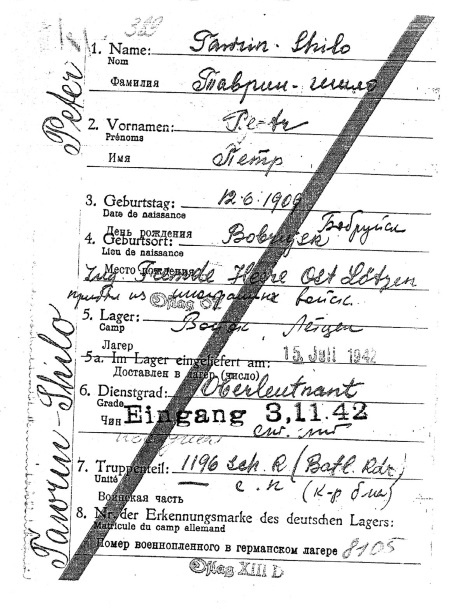 389
Peter
Tawrin-Shilo
1. Name: Tawrin-Shilo
Nom
Фамилия Таврин-шило
2. Vornamen: Petr
Prénoms
Имя Петр
3. Geburtstag: 12.6.1909
Date de naissance
День рождения
4. Geburtsort: Bobrujsk Бобруйск
Lieu de naissance
Место рождения
Zug. Fremde Heere Ost Lötzen
из войск
Oflag
5. Lager:
Camp
Лагерь
5a. Im Lager eingeliefert am: 15. Juli 1942
Доставлен в лагерь (число)
6. Dienstgrad: Oberleutnant
Grade
Чин Eingang 3.11.42
7. Truppenteil: 1196 Sch. R (Batl. Kdr.)
Unité с. п. (к-р б-на)
Воинская часть
8. Nr. der Erkennungsmarke des deutschen Lagers:
Matricule du camp allemand
Номер военнопленного в германском лагере 8105
Oflag XIII D